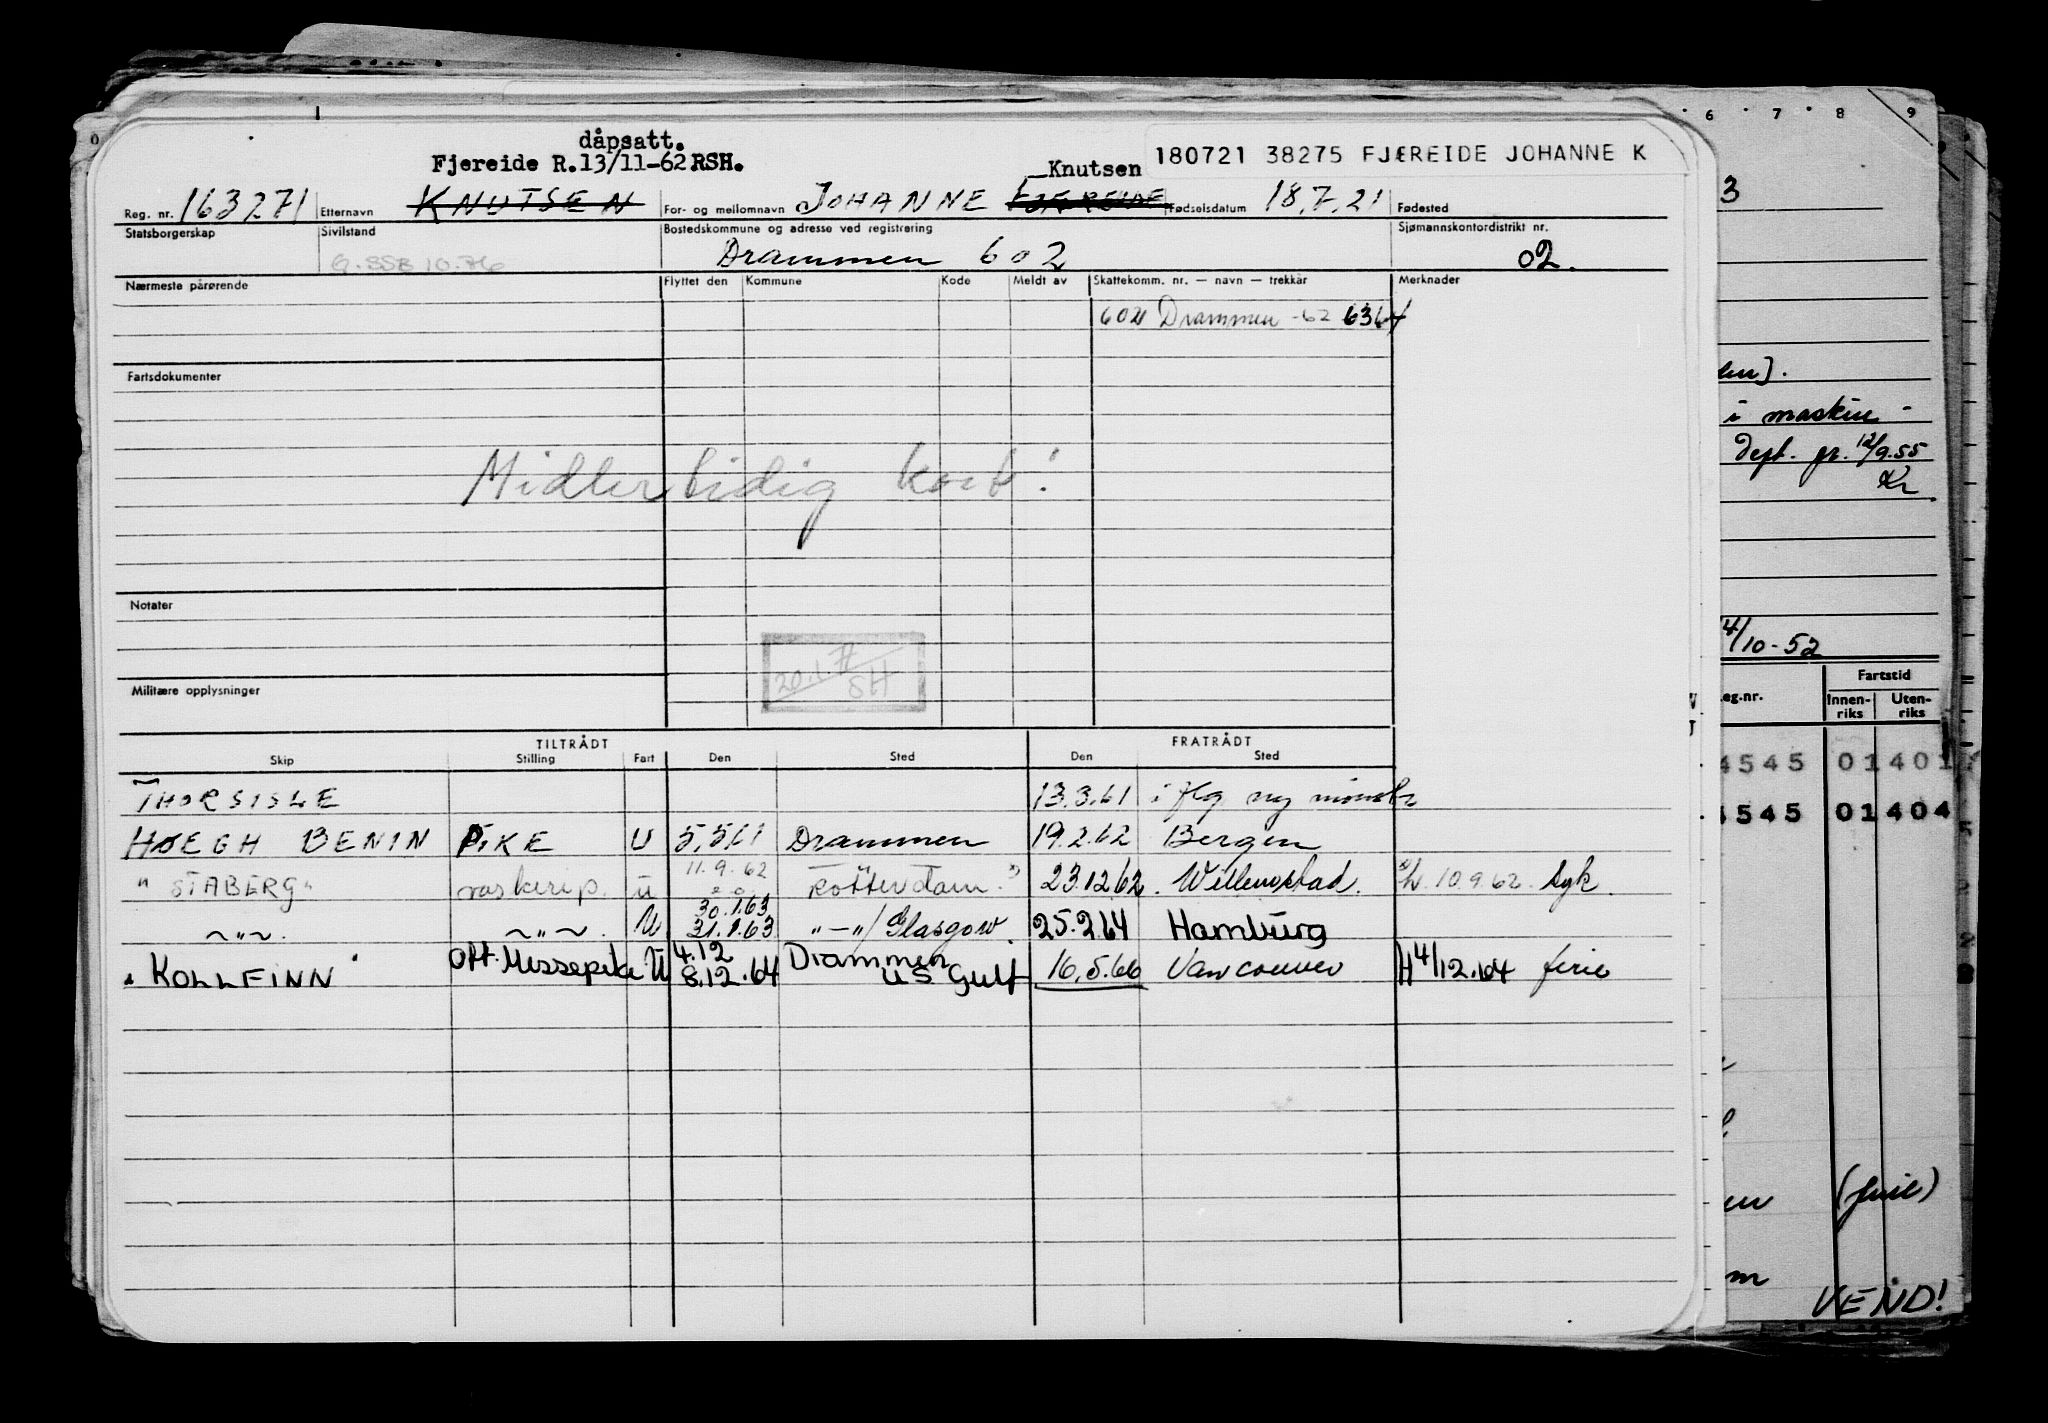 dåpsatt.
Fjereide R.13/11-62 RSH.
Knutsen
180721 38275 FJÆREIDE JOHANNE K
Reg. nr. 163271 Etternavn KNUTSEN For- og mellomnavn JOHANNE FJÆREIDE Fødselsdatum 18.7.21 Fødested
Statsborgerskap Sivilstand Bostedskommune og adresse ved registrering Sjømannskontordistrikt nr.
G. SSB 10.76 Drammen 602 02.
Nærmeste pårørende Flyttet den Kommune Kode Meldt av Skattekomm. nr. — navn — trekkår Merknader
602 Drammen -62 63 64
Fartsdokumenter
Midlertidig kort!
Notater
20.1 77
SH
Militære opplysninger
TILTRÅDT FRATRÅDT
Skip Stilling Fart Den Sted Den Sted
THORSISLE 13.3.61 i flg ny mønstr
HØEGH BENIN PIKE U 5.5.61 Drammen 19.2.62 Bergen
" STABERG " vaskerip. U 11.9.62 Rotterdam 23.12.62 Willemstad. 10.9.62 syk.
~"~. ~"~. U 30.1.63 31.1.63 "-"/Glasgow. 25.2.64 Hamburg
"KOLLFINN" Off. Messepike U 4.12 8.12.64 Drammen US Gulf 16.5.66 Vancouver H 4/12.64 ferie
6 7 8 9
3
i maskin
Dept. gr. 12/9.55
Kr.
4/10-52
eg.nr. Fartstid
Innen-riks Uten-riks
4545 01 401
4545 01 404
(ferie)
VEND!